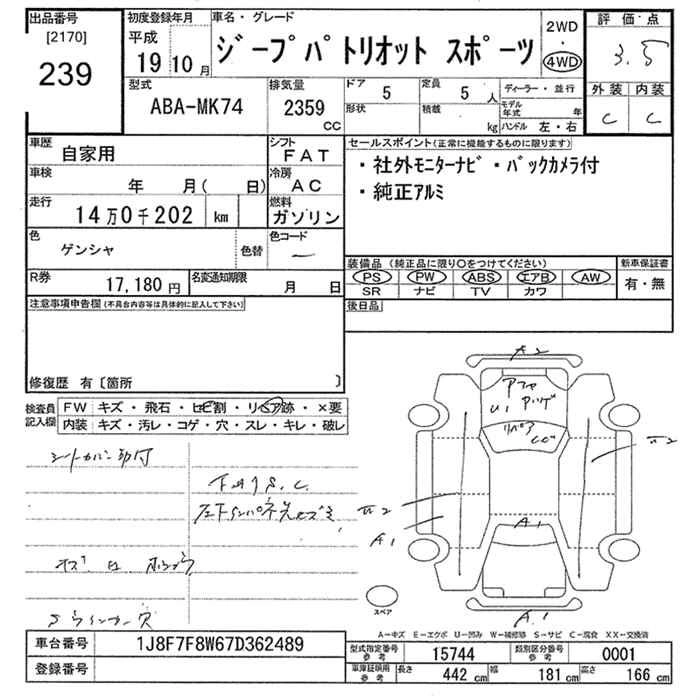 出品番号
[2170]
239
初度登録年月
平成
19 10 月
車名・グレード
ジープパトリオット スポーツ
2WD
・
4WD
評価点
3.5
外装 内装
C C
型式
ABA-MK74
排気量
2359
CC
ドア
5
定員
5 人
形状
積載
kg
ディーラー・並行
モデル年式 年
ハンドル 左・右
車歴
自家用
シフト
FAT
車検
年 月( 日)
冷房
AC
走行
14万0千202 km
燃料
ガソリン
色
ゲンシャ
色替
色コード
R券
17,180 円
名変通知期限
月 日
セールスポイント(正常に機能するものに限ります)
・社外モニターナビ・バックカメラ付
・純正アルミ
装備品(純正品に限り○をつけてください)
PS PW ABS エアB AW
SR ナビ TV カワ
新車保証書
有・無
後日品
注意事項申告欄(不具合内容等は具体的に記入して下さい)
修復歴 有〔箇所 〕
検査員記入欄
FW キズ・飛石・ヒビ割・リペア跡・×要
内装 キズ・汚レ・コゲ・穴・スレ・キレ・破レ
A2
U1
リペア
A1
A1
A1
スペア
A-キズ E-エクボ U-凹み W-補修跡 S-サビ C-腐食 XX-交換済
車台番号
1J8F7F8W67D362489
登録番号
型式指定番号参考
15744
類別区分番号参考
0001
車庫証明用参考
長さ 442 cm 幅 181 cm 高さ 166 cm